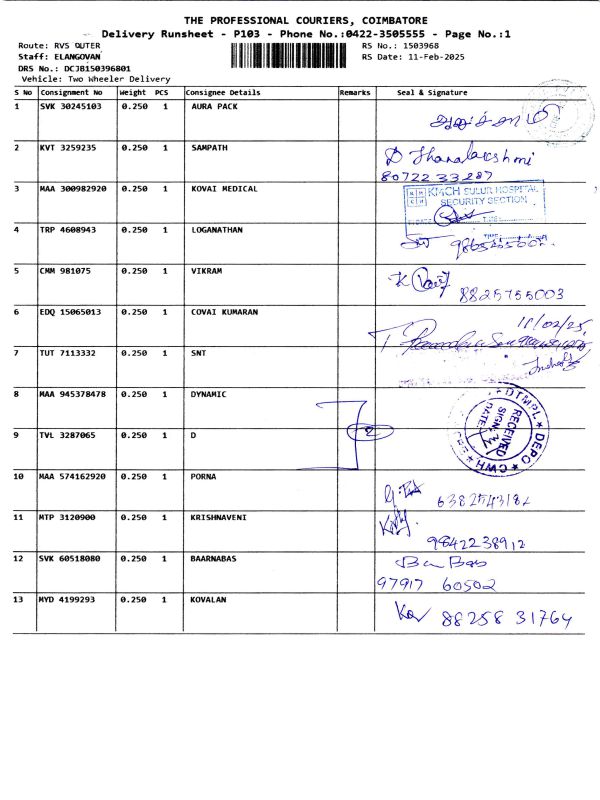 THE PROFESSIONAL COURIERS, COIMBATORE
Delivery Runsheet - P103 - Phone No.:0422-3505555 - Page No.:1
Route: RVS OUTER
RS No.: 1503968
Staff: ELANGOVAN
RS Date: 11-Feb-2025
DRS No.: DCJB150396801
Vehicle: Two Wheeler Delivery
S No Consignment No Weight PCS Consignee Details Remarks Seal & Signature
1 SVK 30245103 0.250 1 AURA PACK
2 KVT 3259235 0.250 1 SAMPATH D Thanalakshmi
8072233287
3 MAA 300982920 0.250 1 KOVAI MEDICAL KMCH SULUR HOSPITAL
SECURITY SECTION
DATE: TIME:
4 TRP 4608943 0.250 1 LOGANATHAN
5 CMM 981075 0.250 1 VIKRAM K
8825755003
6 EDQ 15065013 0.250 1 COVAI KUMARAN 11/02/25,
7 TUT 7113332 0.250 1 SNT
8 MAA 945378478 0.250 1 DYNAMIC
DTMPL ★ DEPO ★ CWH ★
RECEIVED
SIGN:
DATE:
9 TVL 3287065 0.250 1 D 2
10 MAA 574162920 0.250 1 PORNA
11 MTP 3120900 0.250 1 KRISHNAVENI
9842238912
12 SVK 60518080 0.250 1 BAARNABAS
97917 60502
13 MYD 4199293 0.250 1 KOVALAN Kov 88258 31764